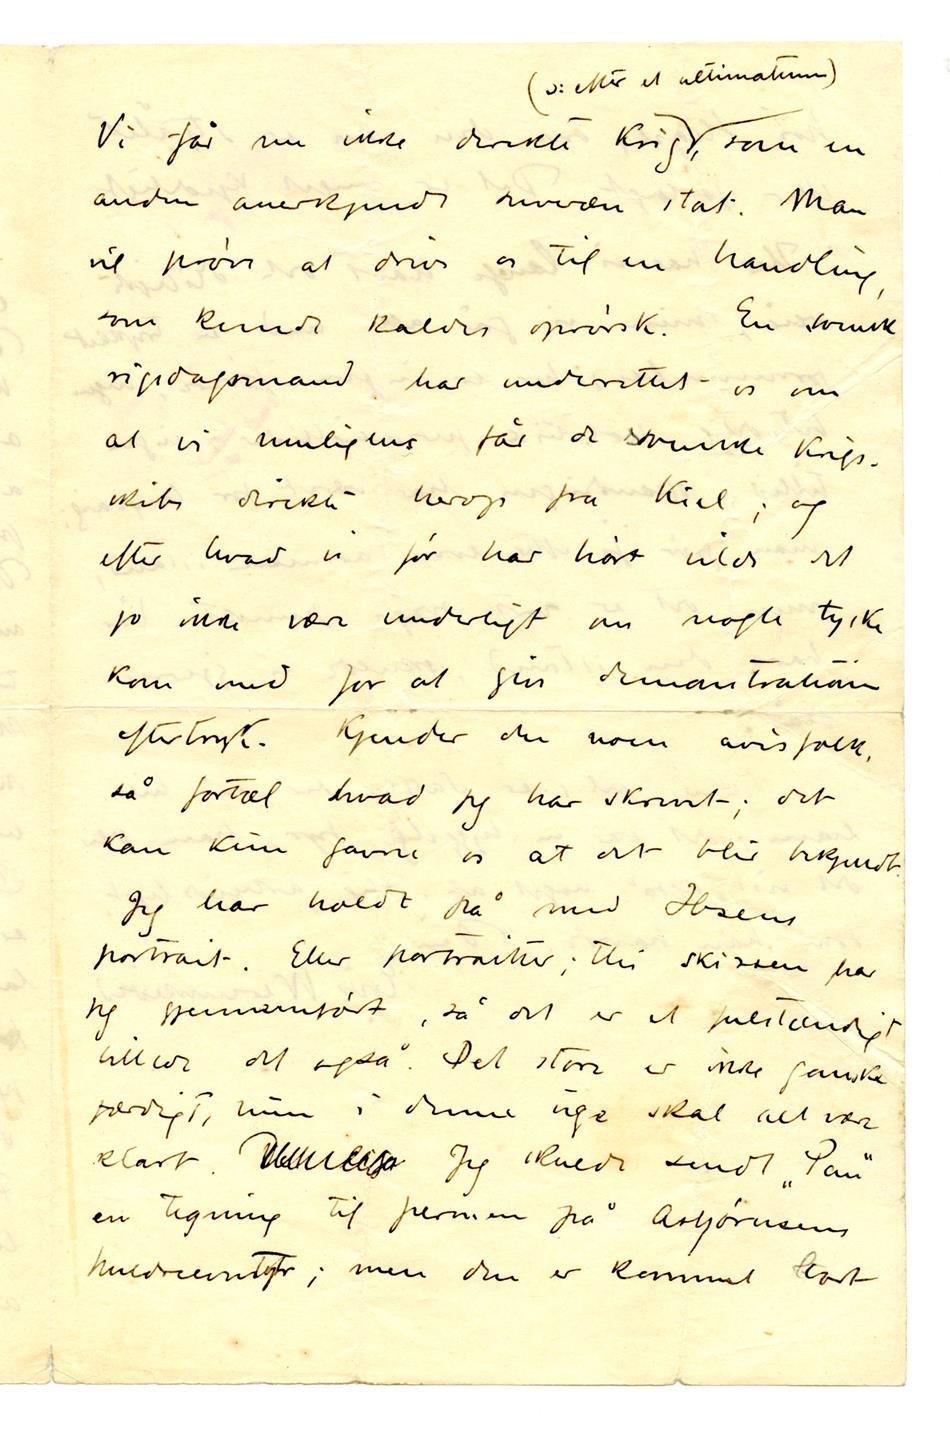 (ɔ: efter et ultimatum)
Vi får nu ikke direkte krig, som en
anden anerkjendt suveræn stat. Man
vil prøve at drive os til en handling,
som kunde kaldes oprørsk. En svensk
rigsdagsmand har underrettet os om
at vi muligens får de svenske krigs-
skibe direkte herop fra Kiel; og
efter hvad vi før har hørt vilde det
jo ikke være underligt om nogle tyske
kom med for at give demonstrationen
eftertryk. Kjender du noen avisfolk,
så fortæl hvad jeg har skrevet; det
kan kun gavne os at det blir bekjendt.
Jeg har holdt på med Ibsens
portrait. Eller portraiter; thi skissen har
jeg gjennemført, så det er et fulstændigt
billede det også. Det store er ikke ganske
færdigt, min i denne uge skal alt være
klart. Jeg skulde sendt „Pan"
en tegning til permen på Asbjørnsens
huldreeventyr; men den er kommet bort